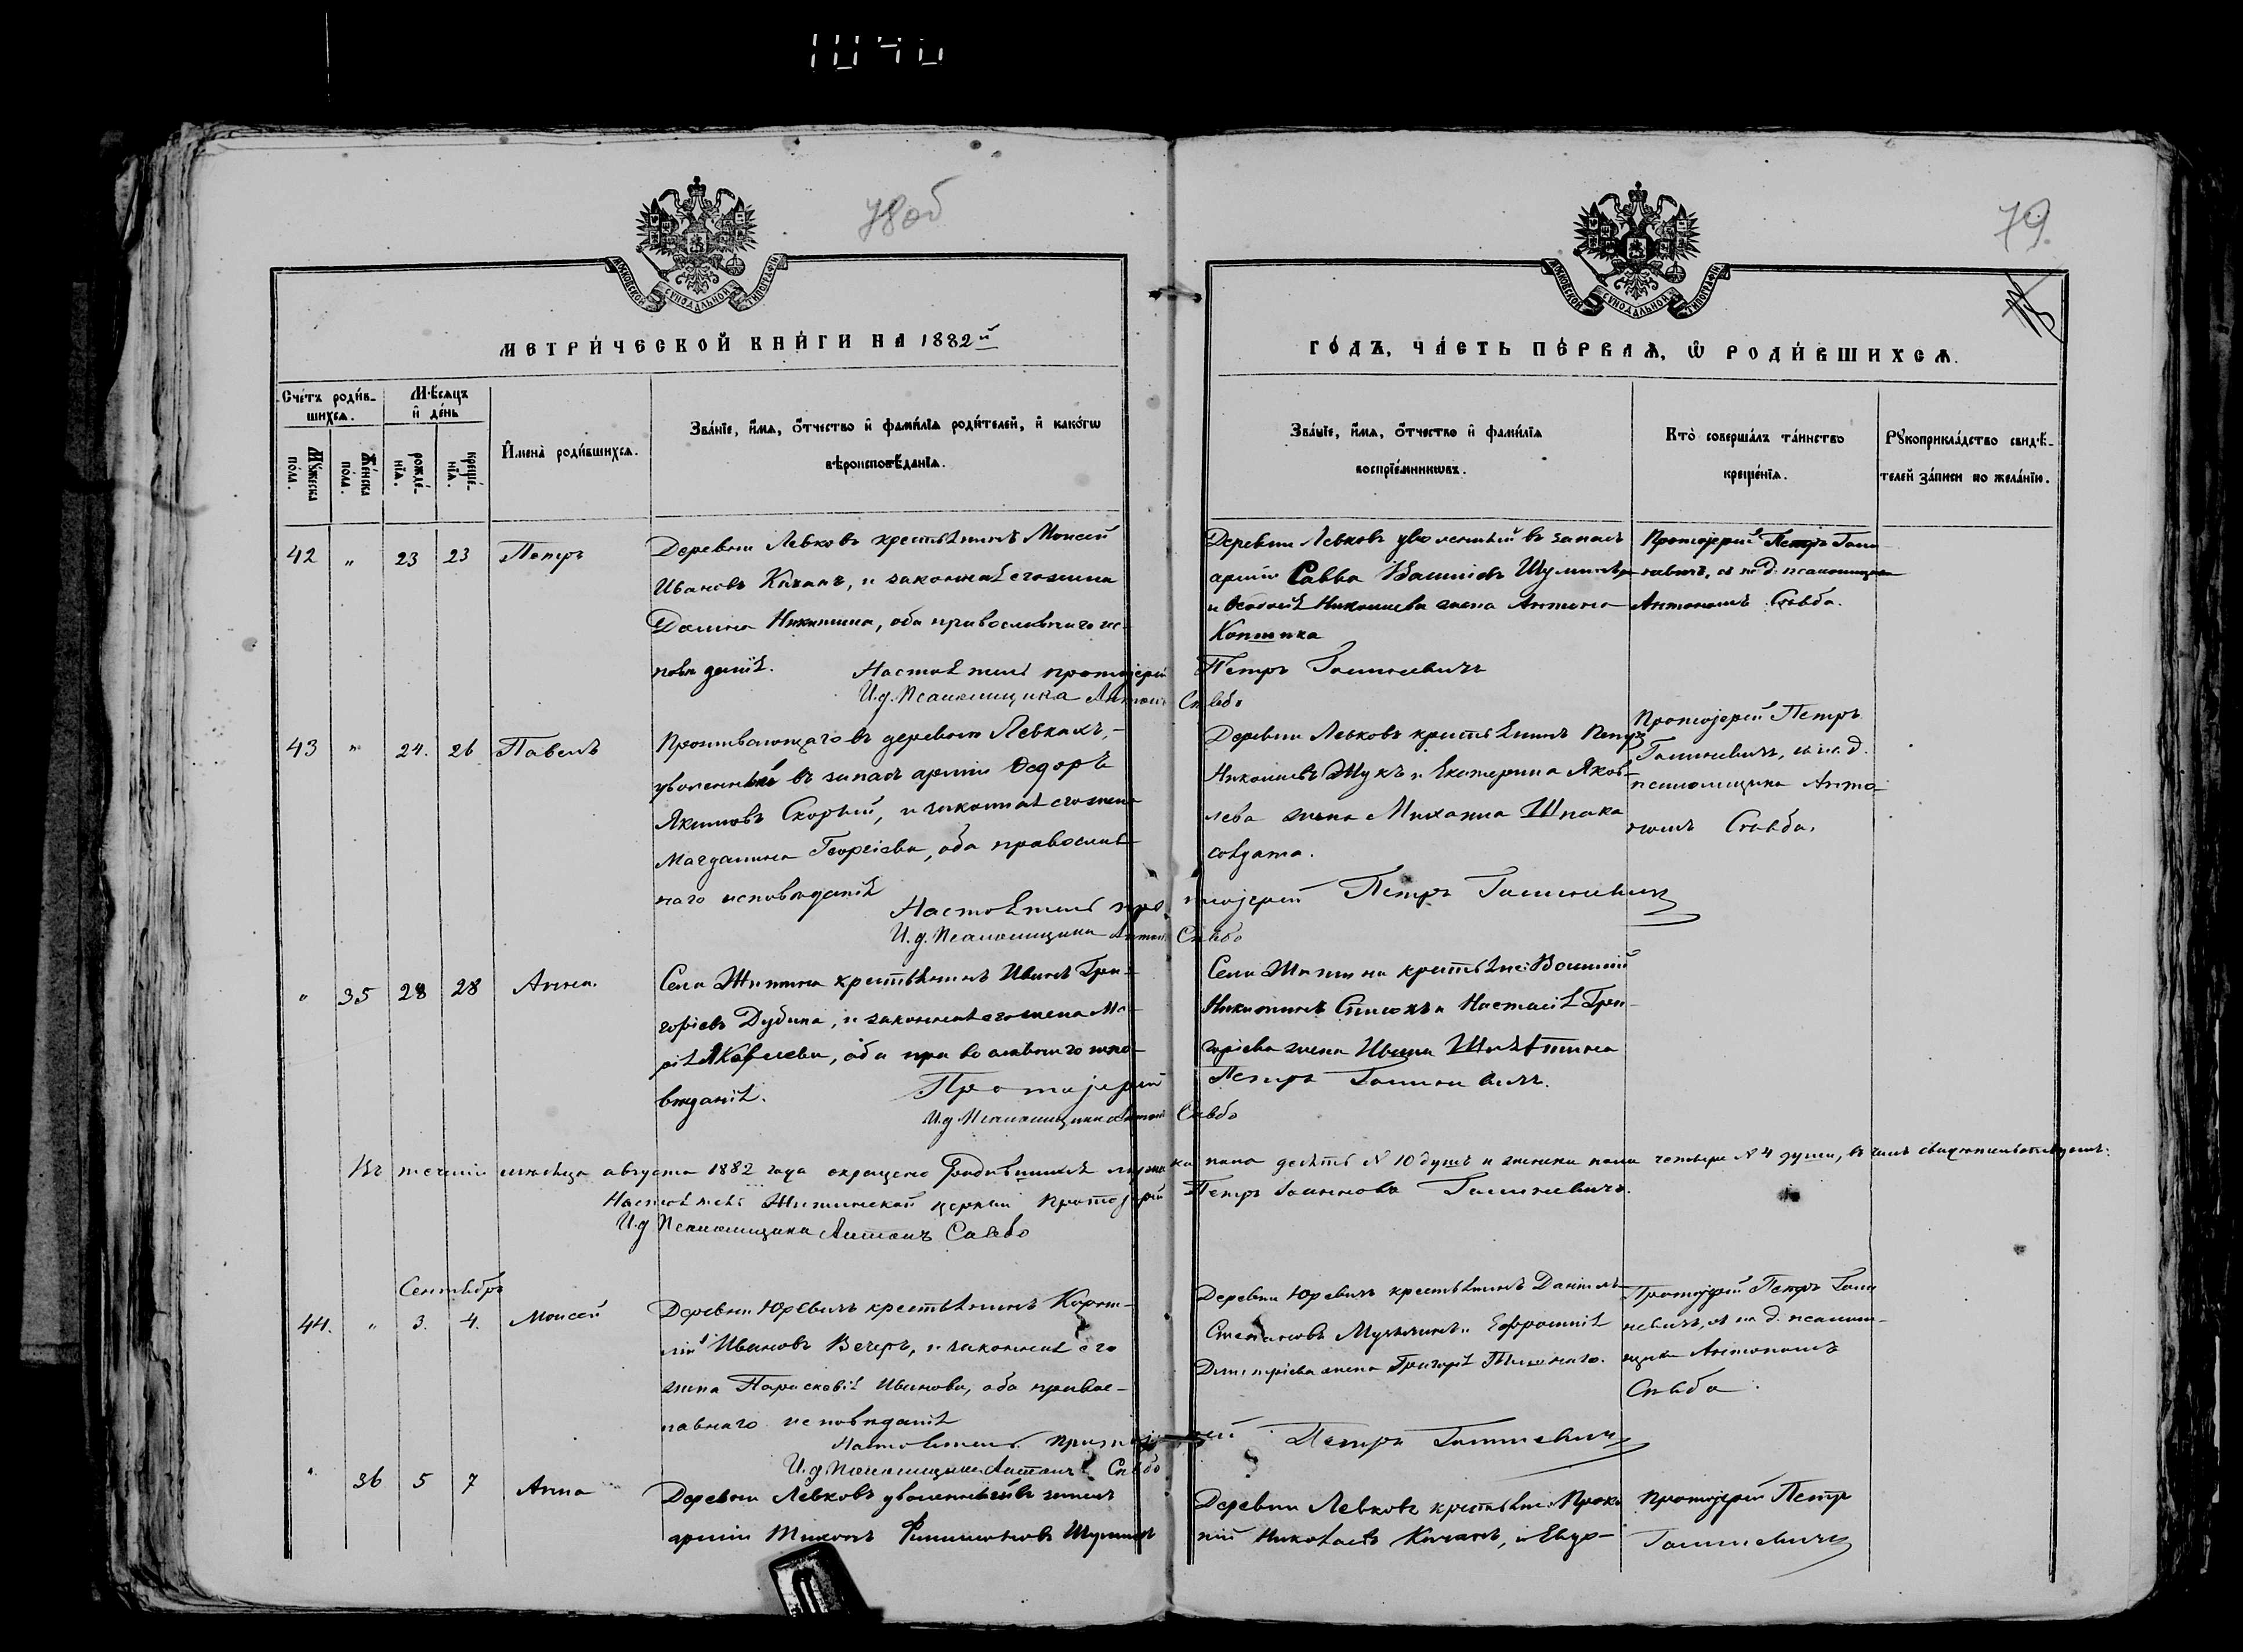 1040
78об
79
МОСКОВСКОЙ СѴНОДАЛЬНОЙ ТИПОГРАФІИ
МОСКОВСКОЙ СѴНОДАЛЬНОЙ ТИПОГРАФІИ
МЕТРИ́ЧЕСКОЙ КНИ́ГИ НА 1882й
ГО́ДЪ, ЧА́СТЬ ПЕ́РВАѦ, Ѽ РОДИ́ВШИХСѦ.
Сче́тъ роди́вшихсѧ.
Мꙋ́жеска по́ла.
Же́нска по́ла.
Мѣсѧцъ и҆ де́нь
рожде́нїѧ.
креще́нїѧ.
И҆мена̀ роди́вшихсѧ.
Зва́нїе, и҆́мѧ, ѻ҆́тчество и҆ фами́лїѧ роди́телей, и҆ како́гѡ
вѣроисповѣ́данїѧ.
Зва́нїе, и҆́мѧ, ѻ҆́тчество и҆ фами́лїѧ
воспрїе́мникѡвъ.
Кто̀ соверша́лъ та́инство
креще́нїѧ.
Рꙋкоприкла́дство свидѣ́-
телей за́писи по жела́нїю.
42 „ 23 23 Петръ
Деревни Левковъ крестьянинъ Моисей
Ивановъ Качанъ, и законная его жена
Домна Никитина, оба православнаго ис-
повѣданія.
Настоятель протоіерей Петръ Галиневичъ
И.д. Псаломщика Антонъ Савбо
Деревни Левковъ уволенный въ запасъ
арміи Савва
и Николаева жена Антона
Протоіерей Петръ Гали
невичъ, съ и. д. псаломщика
Антономъ Савба.
43 „ 24. 26 Павелъ
Проживающаго въ деревнѣ Левкахъ, –
уволенный въ запасъ арміи Ѳедоръ
Якимовъ Скорый, и законная его жена
Магдалина Георгіева, оба православ
наго исповѣданія
Настоятель протоіерей Петръ Галиневичъ
И.д. Псаломщика Антонъ Савбо
Деревни Левковъ крестьянинъ Петръ
Николаевъ Жукъ и Екатерина Яков-
лева жена Михаила Шпака
солдата.
Протоіерей Петръ
Галиневичъ, съ и. д.
псаломщика Анто-
номъ Савба.
„ 35 28 28 Анна.
Села Житина крестьянинъ Иванъ Гри-
горіевъ Дубина, и законная его жена Ма-
рія Яковлева, оба православнаго испо-
вѣданія.
Протоіерей Петръ Галиневичъ.
И.д. Псаломщика Антонъ Савбо
Села Житина крестьяне: Василій
Никитинъ и Настасія Гри-
горіева жена Ивана
Въ теченіи мѣсяца августа 1882 года окрещено родившихся мужска пола десять № 10 душъ и женска пола четыре № 4 души, въ чемъ свидѣтельствуемъ:
Настоятель Житинской церкви Протоіерей Петръ Галиневичъ.
И.д Псаломщика Антонъ Савбо
Сентябрь
44. „ 3. 4. Моисей
Деревни Юревичъ крестьянинъ Корни-
лій Ивановъ Вечеръ, и законная его
жена Параскевія Иванова, оба правос-
лавнаго исповѣданія
Настоятель протоіерей Петръ Галиневичъ
И.д Псаломщика Антонъ Савбо
Деревни Юревичъ крестьянинъ Даніилъ
Степановъ и Евфросинія
Димитріева жена Григорія
Протоіерей Петръ Гали
невичъ, съ и д. псалом-
щика Антономъ
Савба.
„ 36 5 7 Анна
Деревни Левковъ уволенный въ запасъ
арміи Тихонъ Филимоновъ
Деревни Левковъ крестьяне: Проко
пій Николаевъ Качанъ, и Евдо-
Протоіерей Петръ
Галиневичъ